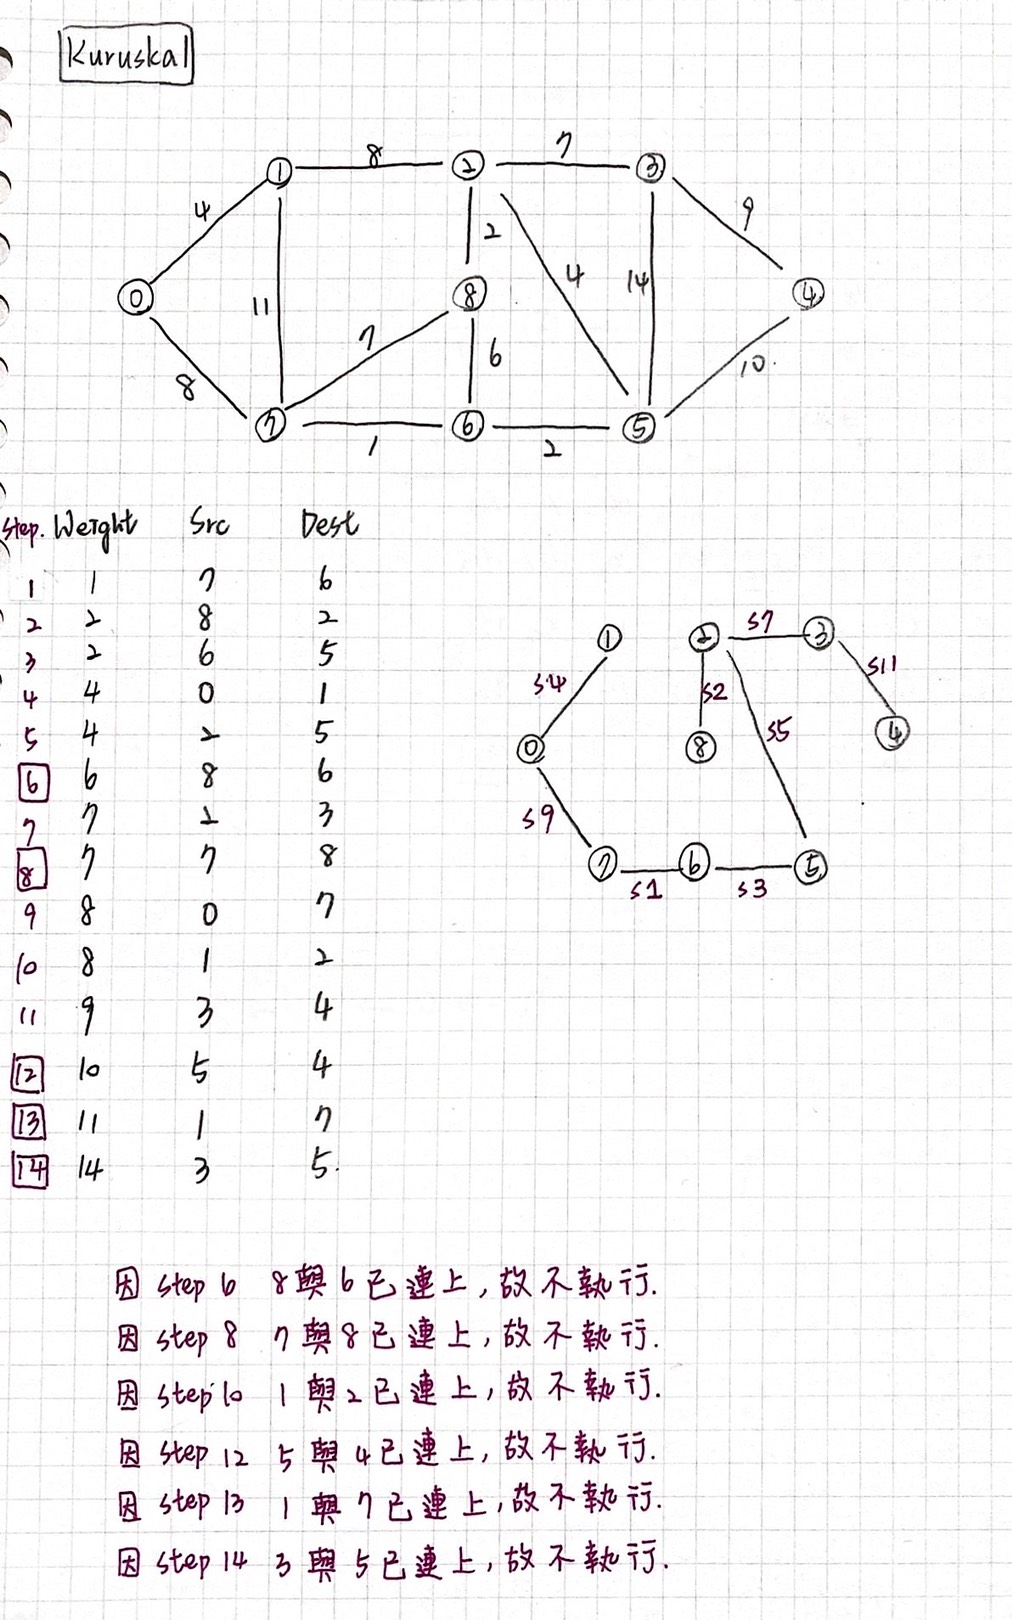 Kuruskal
8 7
1 2 3
4 2 9
0 11 8 4 14 4
7 6
8 10.
7 6 5
1 2
step. Weight Src Dest
1 1 7 6
2 2 8 2
3 2 6 5
4 4 0 1
5 4 2 5
6 6 8 6
7 7 2 3
8 7 7 8
9 8 0 7
10 8 1 2
11 9 3 4
12 10 5 4
13 11 1 7
14 14 3 5.
1 2 S7 3
S4 S2 S11
0 8 S5 4
S9
7 6 5
S1 S3
因 step 6 8與6已連上,故不執行.
因 step 8 7與8已連上,故不執行.
因 step 10 1與2已連上,故不執行.
因 step 12 5與4已連上,故不執行.
因 step 13 1與7已連上,故不執行.
因 step 14 3與5已連上,故不執行.